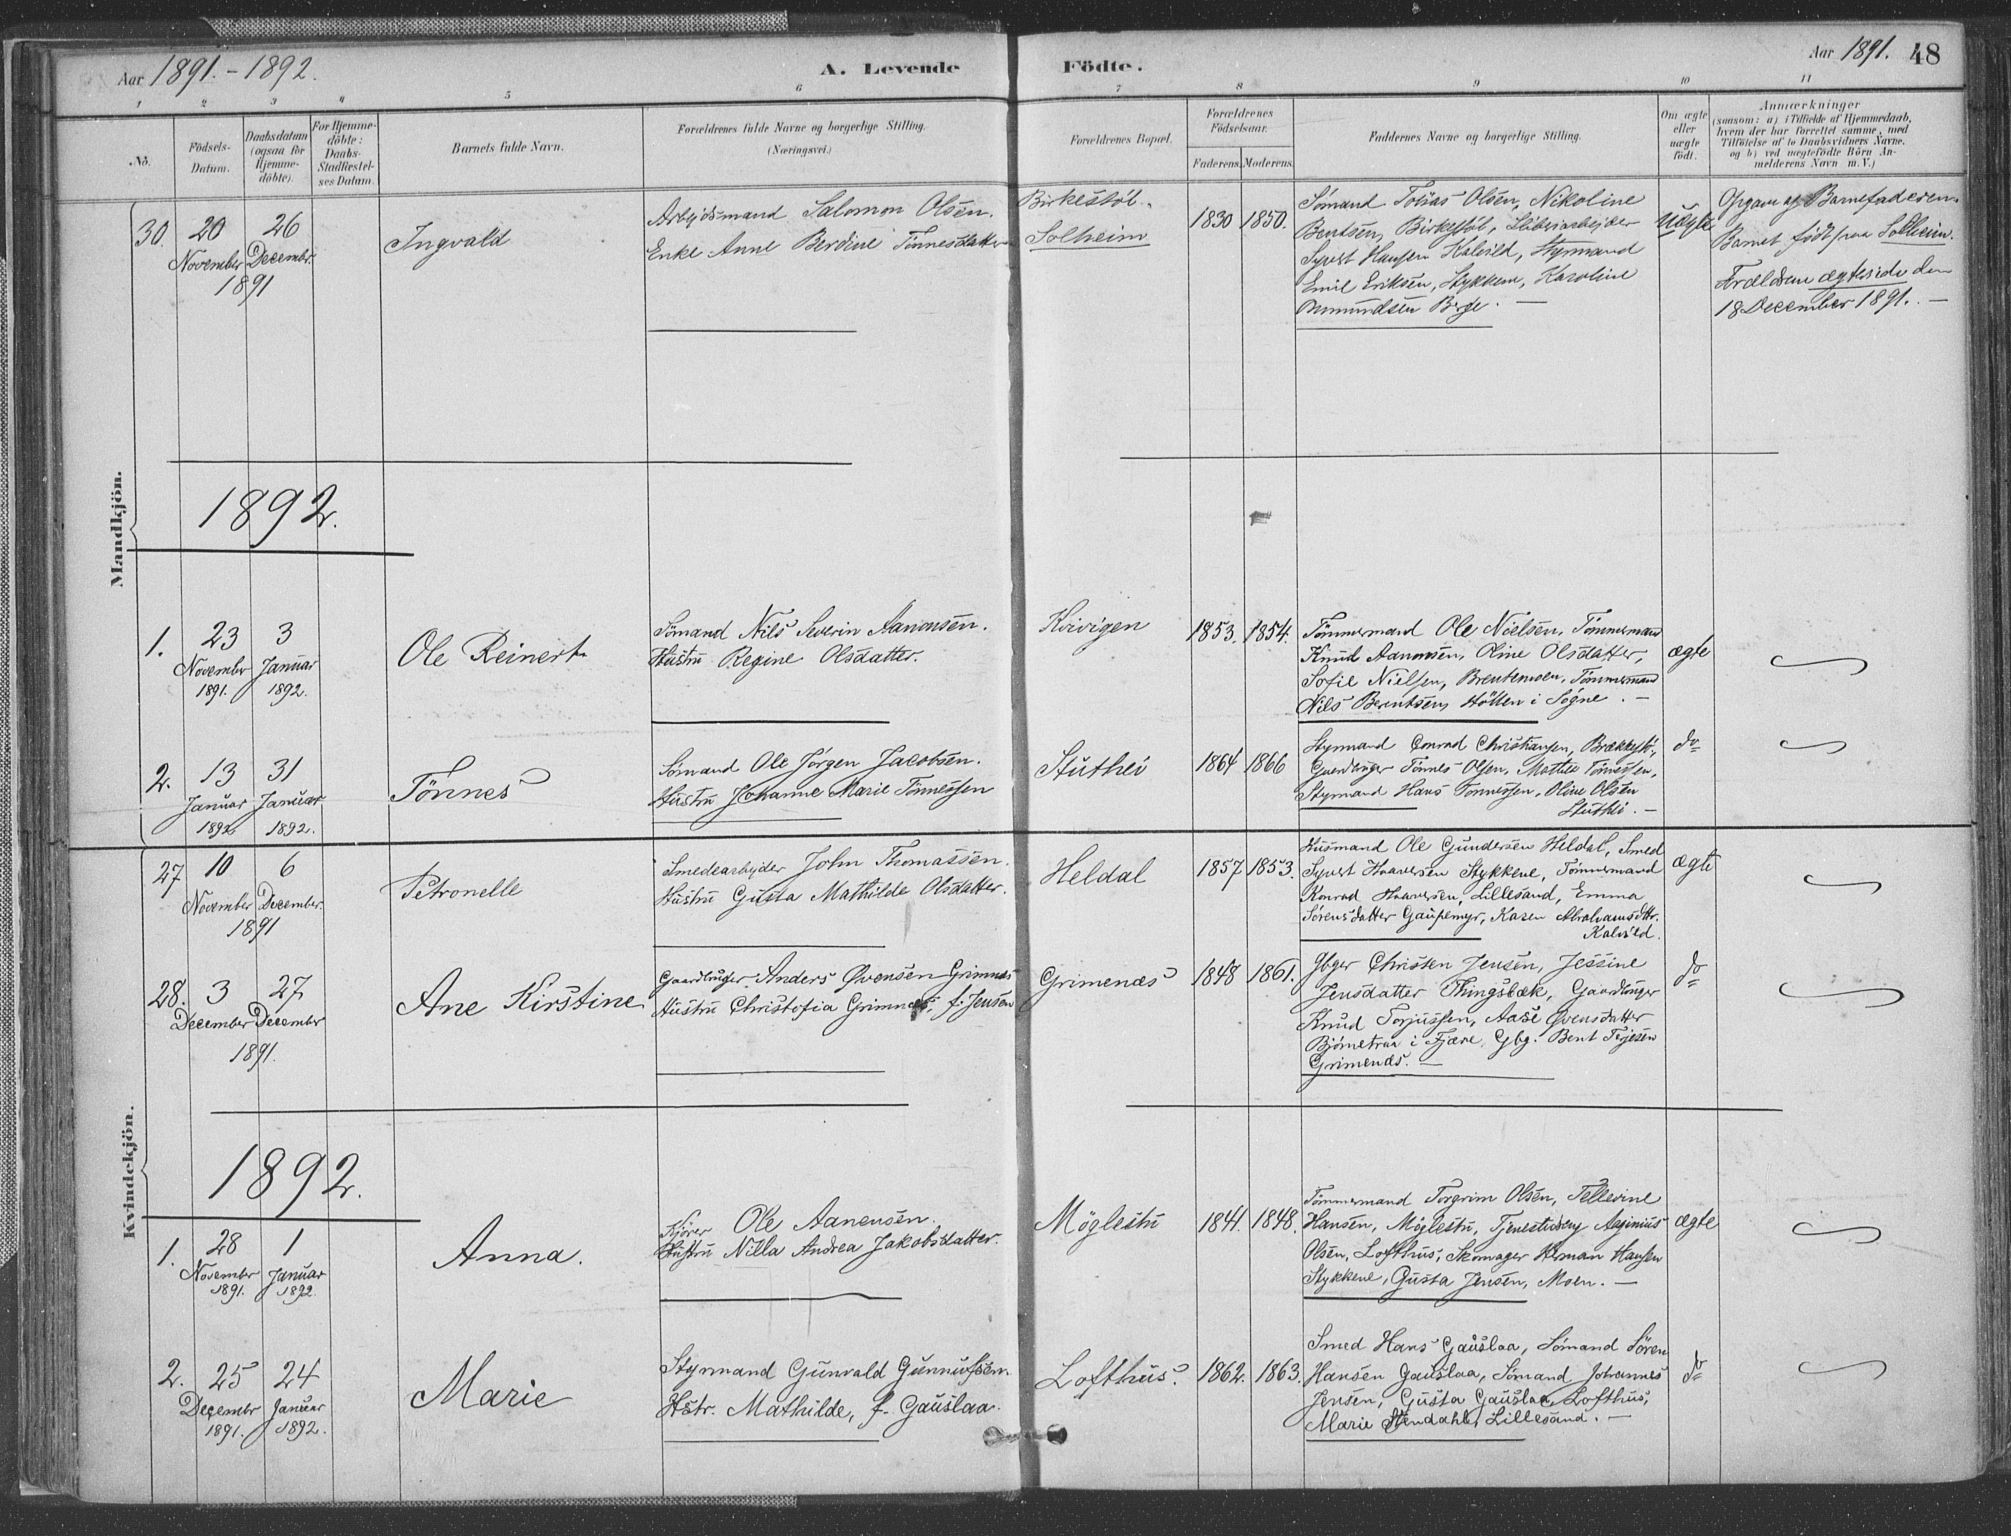 Aar 1891.-1892.
A. Levende
Födte.
Aar 1891.
48
1 2 3 4 5 6 7 8 9 10 11
No.
Födsels-Datum.
Daabsdatum (ogsaa for Hjemme-döbte).
For Hjemme-döbte: Daabs-Stadfæstel-ses Datum.
Barnets fulde Navn.
Forældrenes fulde Navne og borgerlige Stilling.
(Næringsvei.)
Forældrenes Bopæl.
Forældrenes Födselsaar.
Faderens. Moderens.
Faddernes Navne og borgerlige Stilling.
Om ægte eller uægte födt.
Anmærkninger
(saasom: a) i Tilfælde af Hjemmedaab,
hvem der har forrettet samme, med
Tilföielse af to Daabsvidners Navne.
og b) ved uægtefödte Börn An-
melderens Navn m. V.)
Mandkjön.
30. 20 November 1891 26 Decembr.
Ingvald
Arbejdsmand Salomon Olsen.
Enke Anne Berdine Tönnesdatter
Birkestøl.
Solheim
1830 1850.
Sömand Tobias Olsen, Nikoline
Bentsen, Birkestøl, Sliberiarbejder
Syvert Hansen Kalvild, Styrmand
Emil Eriksen, Stykken, Karoline
Omundsen Birge. —
Uægte
Opgave af Barnefaderen.
Barnet födt paa Solheim.
Forældrene ægteviede den
18 December 1891. —
1892.
1. 23 November 1891. 3 Januar 1892.
Ole Reinert
Sömand Nils Severin Aanonsen.
Hustru Regine Olsdatter.
Kvivigen
1853. 1854.
Tömmermand Ole Nielsen, Tömmermand
Knud Aanonsen, Oline Olsdatter,
Sofie Nielsen, Brentemoen, Tömmermand
Nils Berentsen, Hölten i Søgne. —
ægte
2. 13 Januar 1892. 31 Januar 1892.
Tönnes
Sömand Ole Jørgen Jacobsen.
Hustru Johanne Marie Tönnessen
Stuthei
1864 1866
Styrmand Conrad Christiansen, Brækkestø,
Gaardbruger Tönnes Olsen, Mathea Tönnessen,
Styrmand Hans Tönnessen, Oline Olsen
Stuthei. —
do
Kvindekjön.
27 10 November 1891 6 December.
Petronelle
Smedearbejder John Thomassen.
Hustru Gusta Mathilde Olsdatter.
Heldal
1857 1853.
Husmand Ole Gundersen Heldal, Smed
Syvert Haaversen Stykkene, Tömmermand
Konrad Haaversen, Lillesand, Emma
Sörensdatter Gaupemyr, Karen Abrahamsdtr.
Kalvild.
ægte
28. 3 December 1891. 27 December
Ane Kirstine
Gaardbruger Anders Øvensen Grimnes
Hustru Christofia Grimnes, f. Jensen
Grimenæs
1848 1861.
Gbger Christen Jensen, Jessine
Jensdatter Thingsbæk, Gaardbruger
Knud Torjussen, Aase Øvensdatter
Bjørnetraa i Fjære, Gbg. Bent Terjesen
Grimenæs. —
do
1892.
1. 28 November 1891. 1 Januar 1892
Anna.
Kjörer Ole Aanensen.
Hustru Nilla Andrea Jakobsdatter.
Möglestu
1841. 1848.
Tömmermand Torgrim Olsen, Tellevine
Hansen, Möglestu, Tjenestedreng Asginius
Olsen, Lofthus, Skomager Herman Hansen
Stykkene, Gusta Jensen, Moen. —
ægte
2. 25 Decembr 1891. 24 Januar 1892.
Marie
Styrmand Gunvald Gunnufsen
Hstr. Mathilde, f. Gauslaa.
Lofthus.
1862. 1863.
Smed Hans Gauslaa, Sömand Sören
Hansen Gauslaa, Sömand Johannes
Jensen, Gusta Gauslaa, Lofthus,
Marie Stendahl, Lillesand. —
do